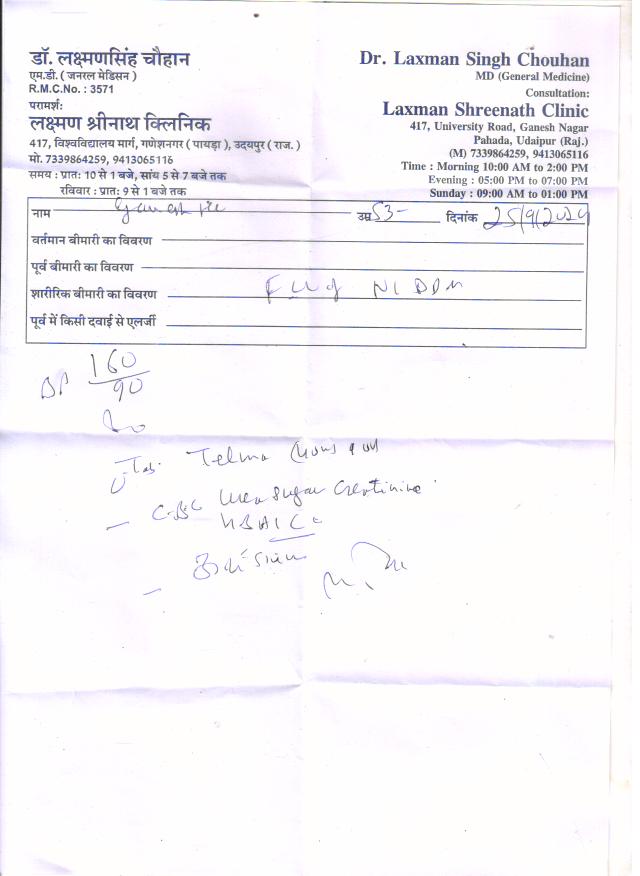 डॉ. लक्ष्मणसिंह चौहान
एम.डी. ( जनरल मेडिसन )
R.M.C.No. : 3571
परामर्श:
लक्ष्मण श्रीनाथ क्लिनिक
417, विश्वविद्यालय मार्ग, गणेशनगर ( पायड़ा ), उदयपुर ( राज. )
मो. 7339864259, 9413065116
समय : प्रात: 10 से 1 बजे, सांय 5 से 7 बजे तक
रविवार : प्रात: 9 से 1 बजे तक
Dr. Laxman Singh Chouhan
MD (General Medicine)
Consultation:
Laxman Shreenath Clinic
417, University Road, Ganesh Nagar
Pahada, Udaipur (Raj.)
(M) 7339864259, 9413065116
Time : Morning 10:00 AM to 2:00 PM
Evening : 05:00 PM to 07:00 PM
Sunday : 09:00 AM to 01:00 PM
नाम उम्र 53- दिनांक 25/9/2024
वर्तमान बीमारी का विवरण
पूर्व बीमारी का विवरण
शारीरिक बीमारी का विवरण NIDDM
पूर्व में किसी दवाई से एलर्जी
BP 160
90
Tab. Telma
CBC Urea Sugar Creatinine
HBA1C